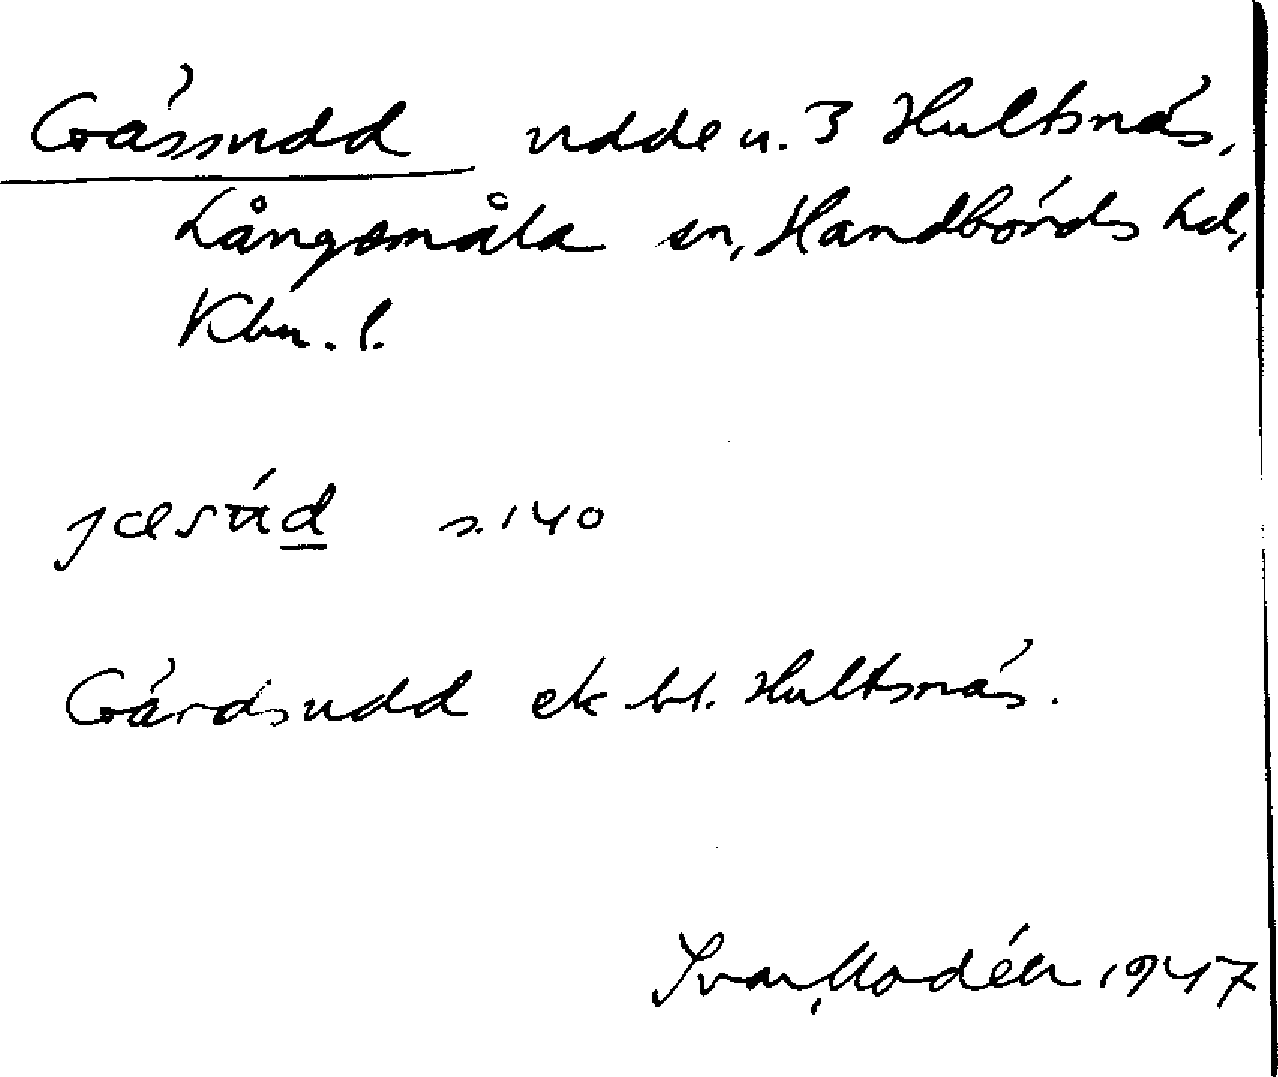 Gässudd udde u. 3 Hultsnäs,
Långemåla sn, Handbörds hd,
Klm. l.
jæsúd s. 140
Gärdsudd ek bl. Hultsnäs.
Ivar Modéer 1947